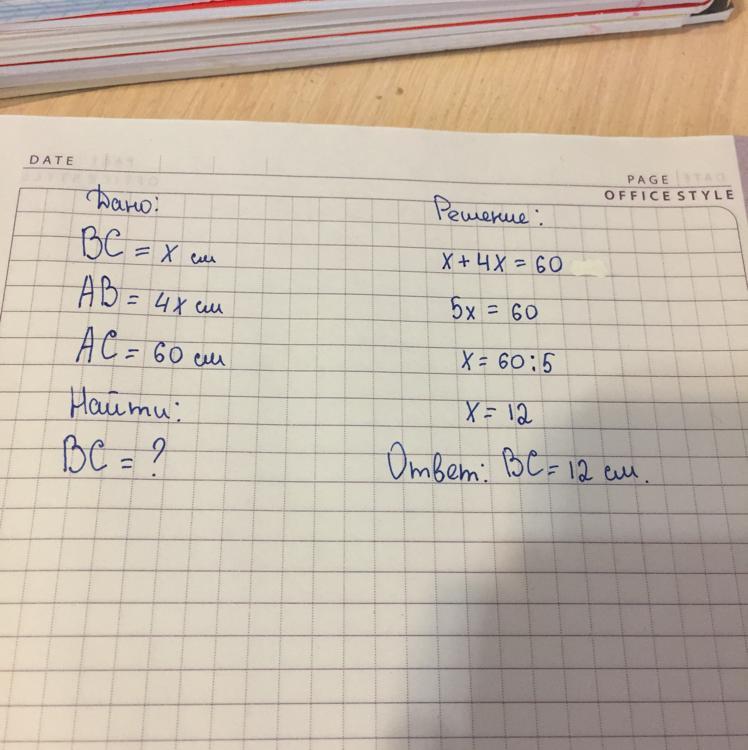 DATE
PAGE
OFFICE STYLE
Дано:
BC = x см
AB = 4x см
AC = 60 см
Найти:
BC = ?
Решение:
x + 4x = 60
5x = 60
x = 60:5
x = 12
Ответ: BC = 12 см.